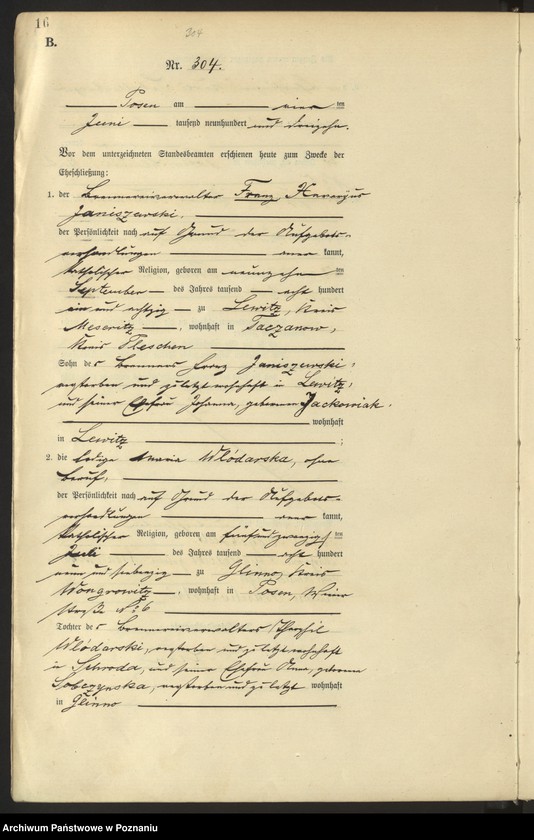 16
304
B.
Nr. 304.
Posen am vier ten
Juni tausend neunhundert und dreizehn.
Vor dem unterzeichneten Standesbeamten erschienen heute zum Zwecke der
Eheschließung:
1. der Brennereiverwalter Franz Xaverius
Janiszewski.
der Persönlichkeit nach auf Grund der Aufgebots-
verhandlungen aner kannt,
katholischer Religion, geboren am neunzehn ten
September des Jahres tausend acht hundert
ein und achtzig zu Lewitz, Kreis
Meseritz, wohnhaft in Taczanow,
Kreis Pleschen
Sohn des Brenners Franz Janiszewski,
verstorben und zuletzt wohnhaft in Lewitz,
und seiner Ehefrau Johanna, geborenen Jackowiak.
wohnhaft
in Lewitz ;
2. die ledige Maria Włódarska, ohne
Beruf,
der Persönlichkeit nach auf Grund der Aufgebots-
verhandlungen aner kannt,
katholischer Religion, geboren am fünfundzwanzigs ten
Juli des Jahres tausend acht hundert
neun und siebenzig zu Glinno, Kreis
Wongrowitz, wohnhaft in Posen,
Straße No 6
Tochter des Brennereiverwalters Theophil
Włódarski, verstorben und zuletzt wohnhaft
in Schroda, und seiner Ehefrau Anna, geborenen
Sobczynska, verstorben und zuletzt wohnhaft
in Glinno
Archiwum Państwowe w Poznaniu